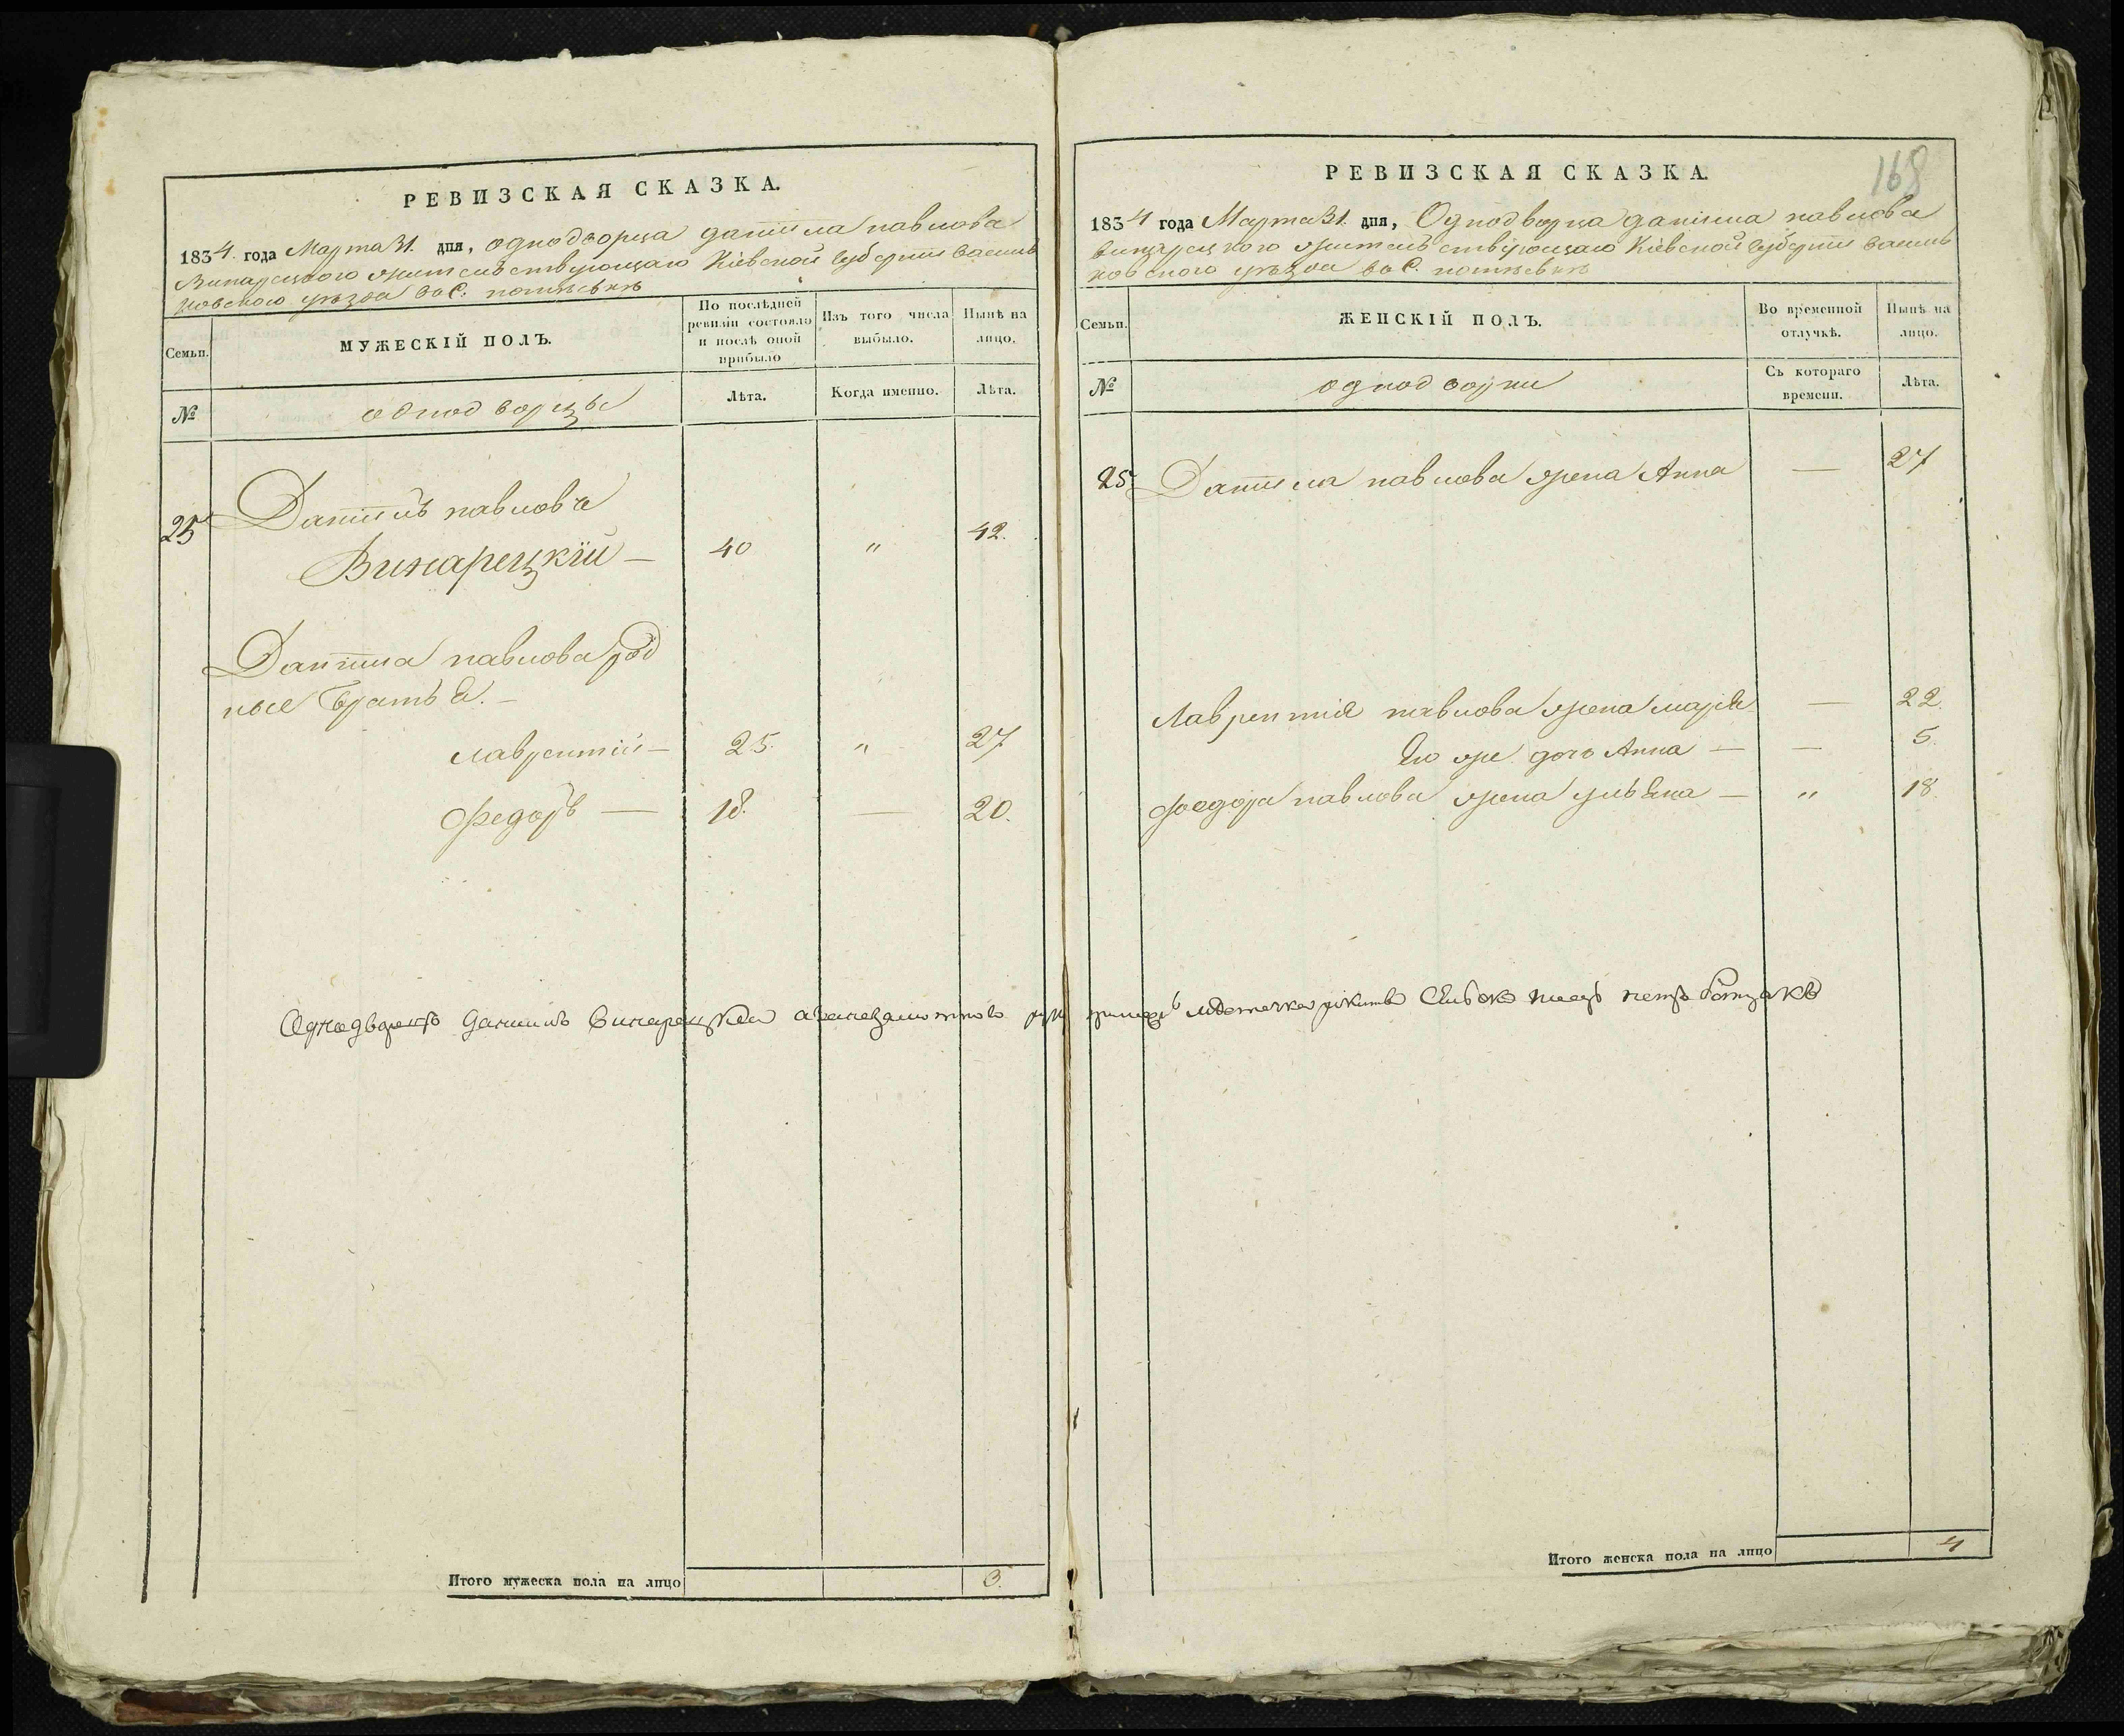 РЕВИЗСКАЯ СКАЗКА.
1834. года Марта 31. дня, однодворца Данiила павлова
Винарецкого жительствующаго Кiевской губернiи Василь
ковского уѣзда въ С.
Семьи.
МУЖЕСКIЙ ПОЛЪ.
По послѣдней ревизiи состояло и послѣ оной прибыло
Изъ того числа выбыло.
Нынѣ на лицо.
№
однодворцы
Лѣта.
Когда именно.
Лѣта.
25
Данiилъ павловъ
Винарецкiй —
40
"
42.
Данiила павлова род
ные братья. —
лаврентiй —
25.
"
27
Федоръ —
18.
—
20.
Однодворецъ Данiилъ Винарецкiй
Итого мужеска пола на лицо
3.
168
РЕВИЗСКАЯ СКАЗКА.
1834 года Марта 31. дня, Однодворца данiила павлова
винарецкого жительствующаго Кiевской губернiи василь
ковского уѣзда въ С.
Семьи.
ЖЕНСКIЙ ПОЛЪ.
Во временной отлучкѣ.
Нынѣ на лицо.
№
однодворки
Съ котораго времени.
Лѣта.
25
Данiила павлова жена Анна
—
27
Лаврентiя павлова жена марiя
—
22.
Его же дочь Анна —
—
5.
Феодора павлова жена ульяна —
"
18.
Итого женска пола на лицо
4